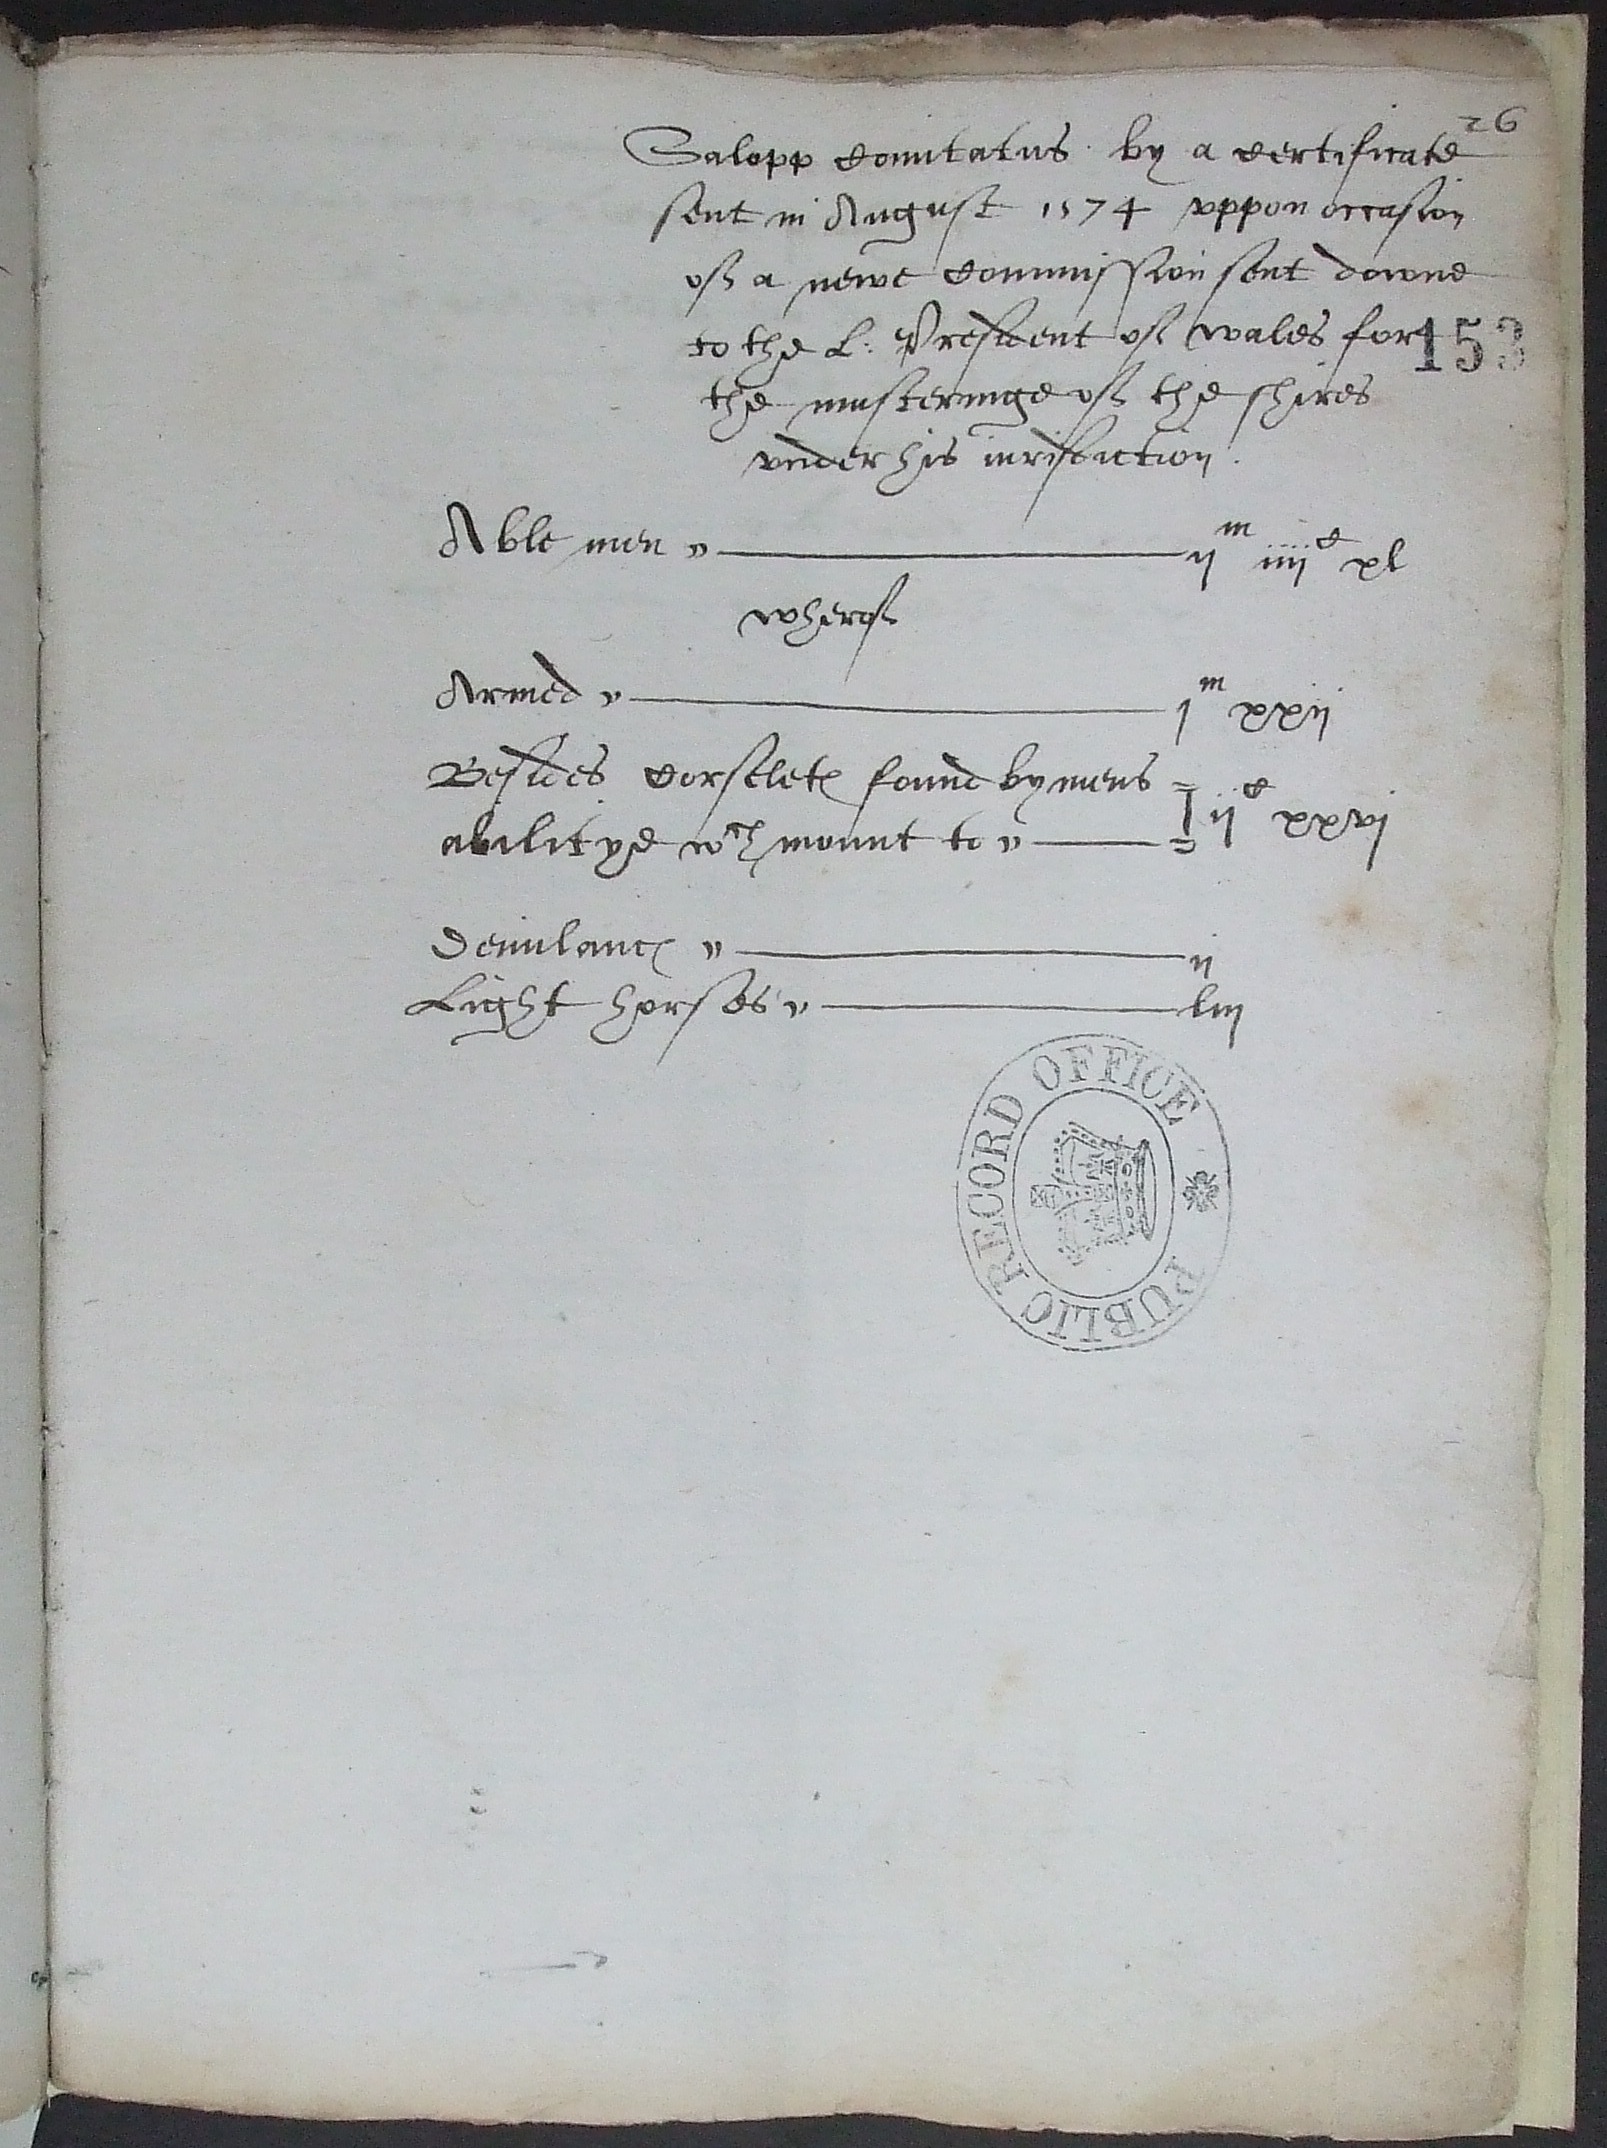 26
Salopp Comitatus by a certificate
sent in August 1574 vppon occasion
of a newe Commission sent downe
to the L: President of wales for
153
the musteringe of the shires
vnder his iurisdiction.
Able men ij m iiij c xl
wherof
Armed j m xxij
Besides Corselet found by mens
abilitye wch mount to ij c xxvj
Demilanc ij
Light horses liij
PUBLIC RECORD OFFICE